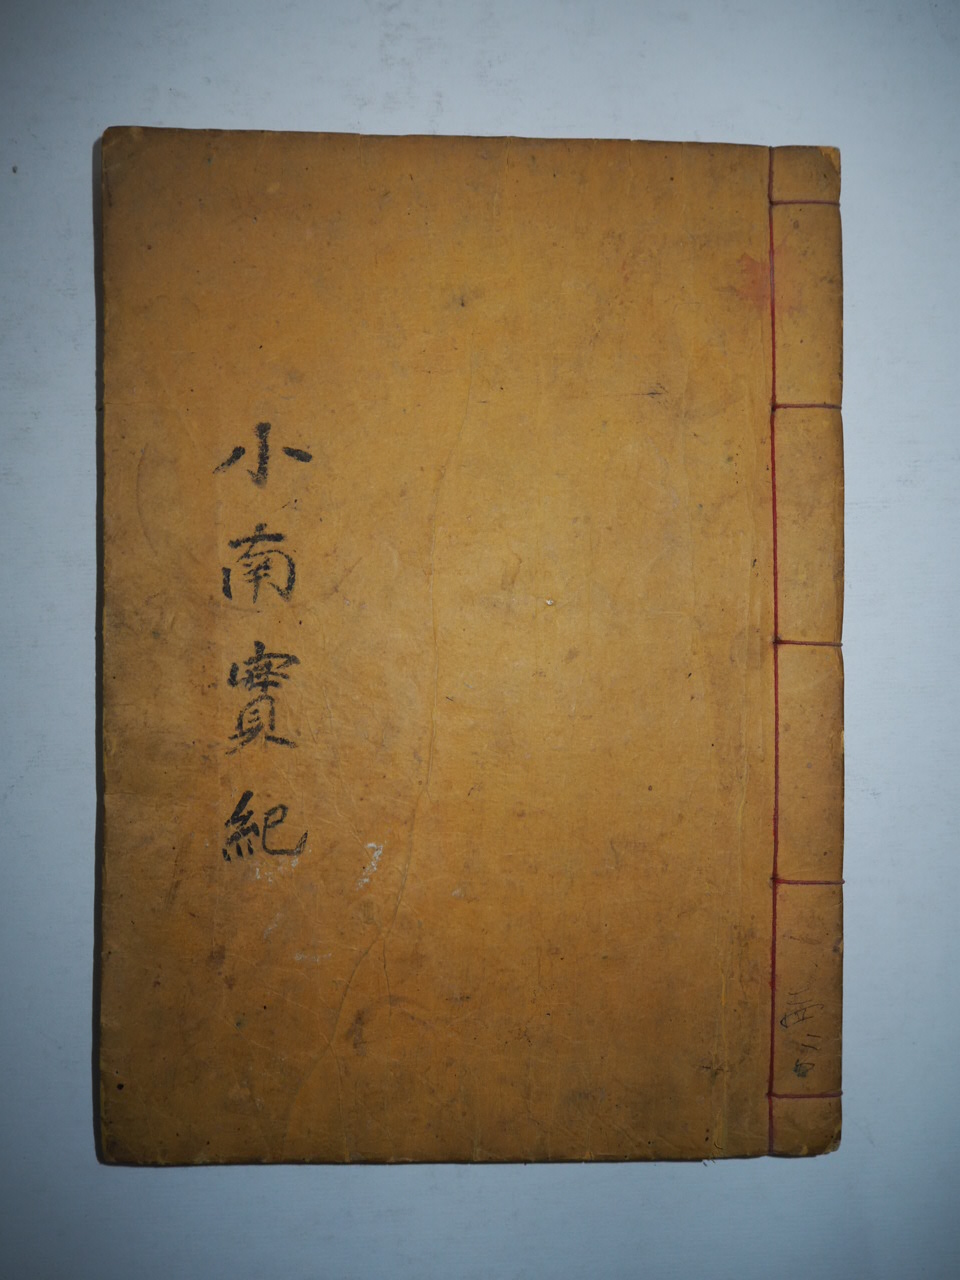 小南實紀